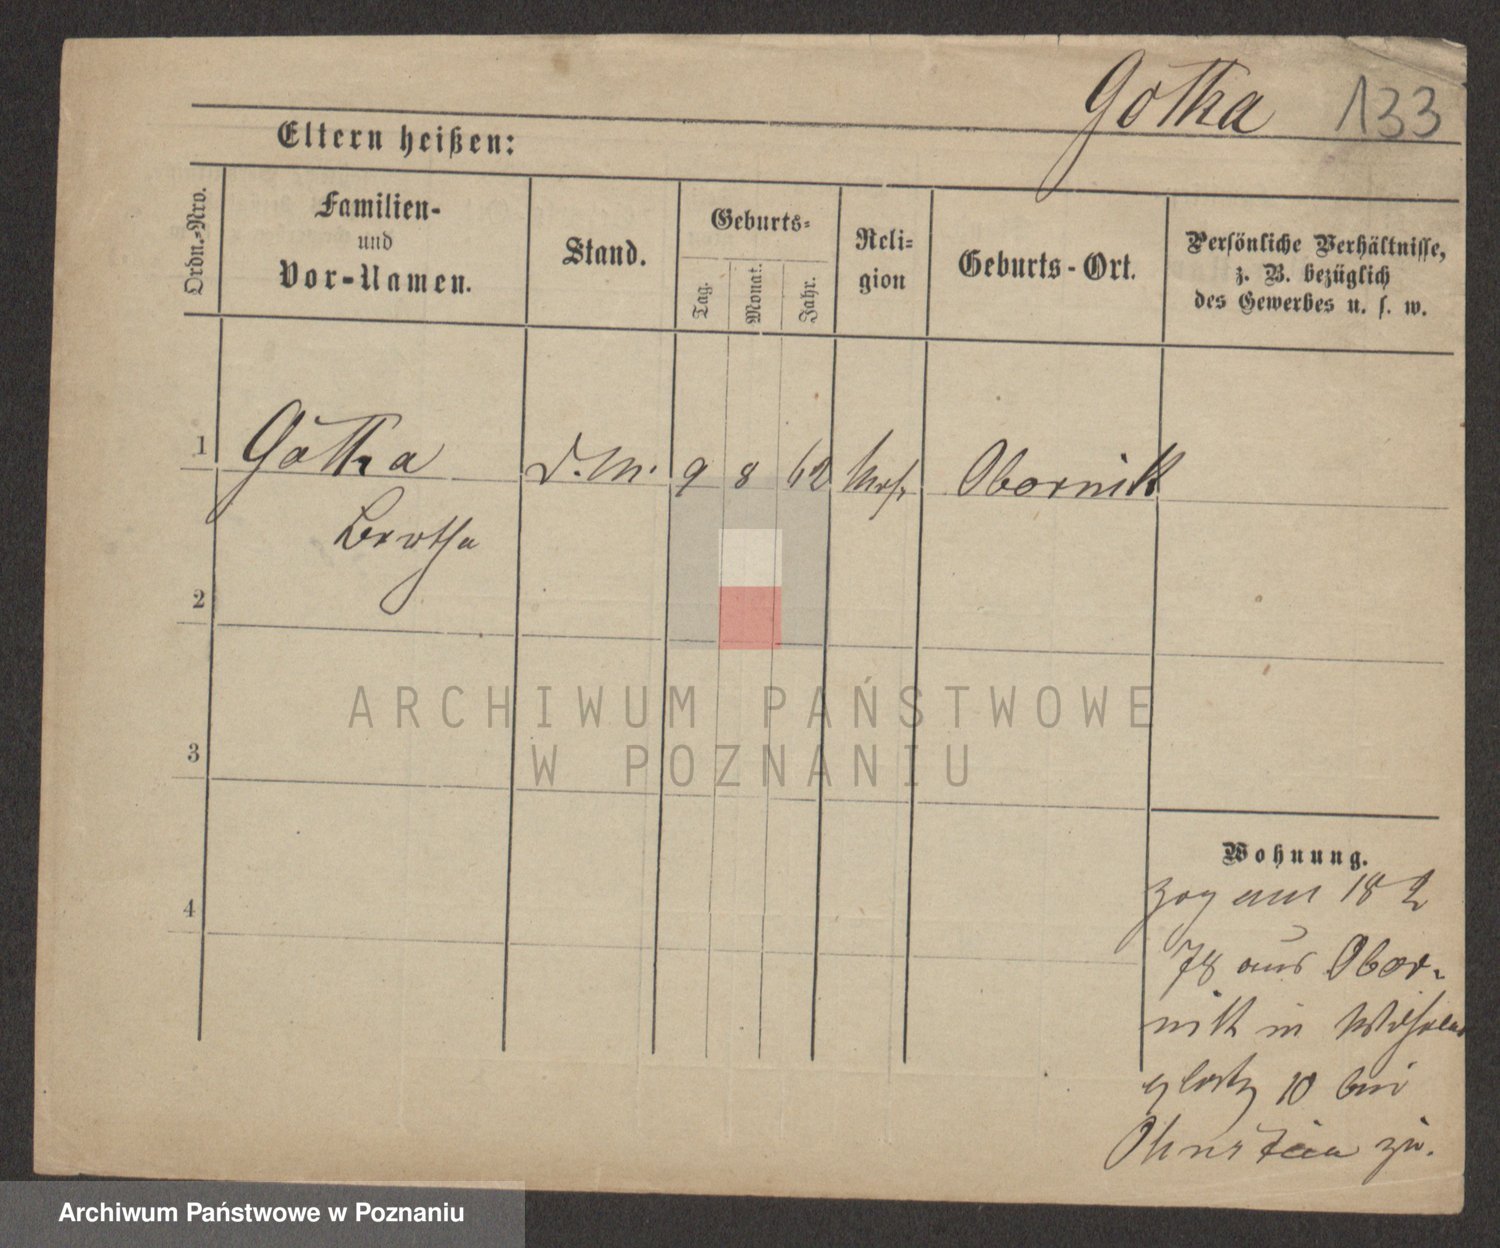 Gotha 133
Eltern heißen:
Ordn.-Nro.
Familien-
und
Vor-Namen.
Stand.
Geburts-
Tag.
Monat.
Jahr.
Reli-
gion
Geburts-Ort.
Persönliche Verhältnisse,
z. B. bezüglich
des Gewerbes u. s. w.
1 Gotha D. M. 9 8 62 Obornik
Bertha
2
3
4
Wohnung.
zog am 18 2
78 aus Obor-
nik in Wilhelms
platz 10 bei
zu.
ARCHIWUM PAŃSTWOWE
W POZNANIU
Archiwum Państwowe w Poznaniu